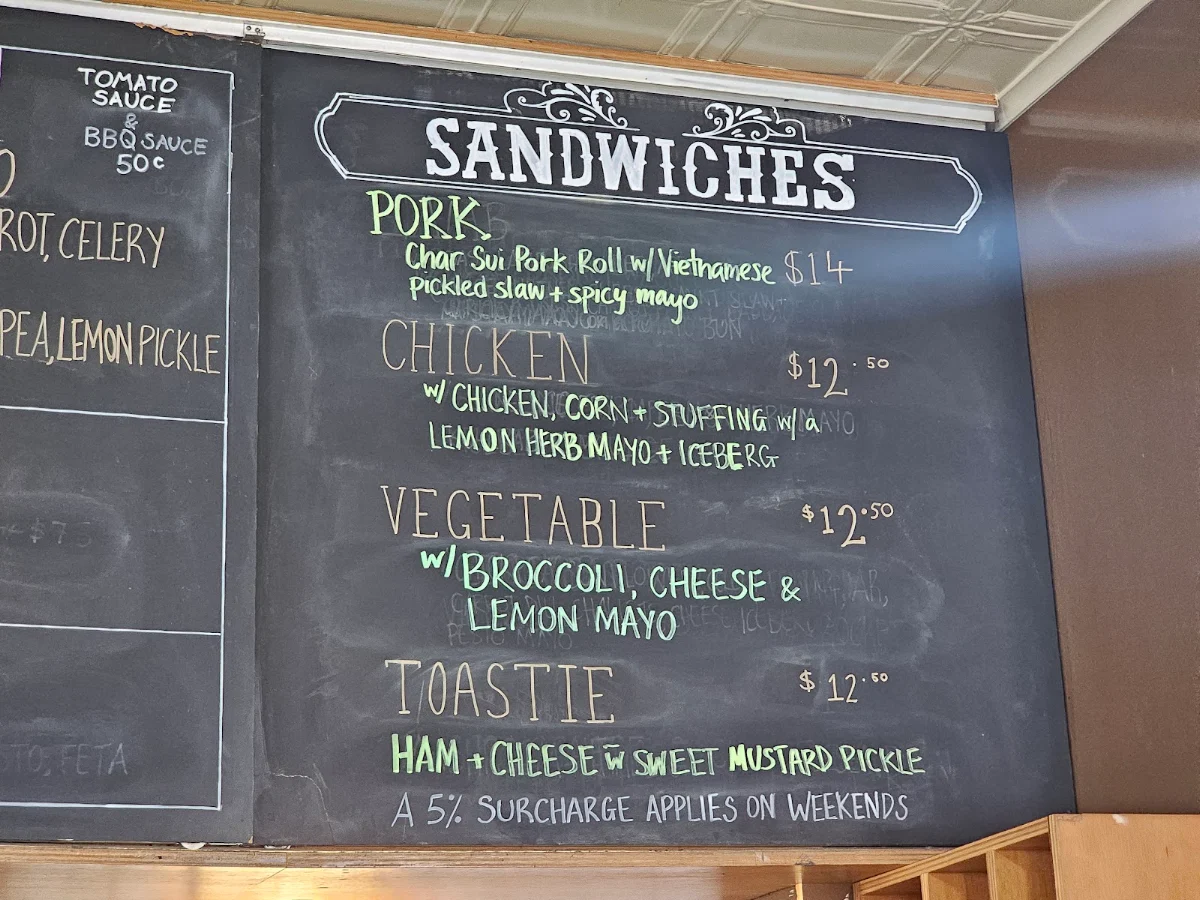 TOMATO
SAUCE
&
BBQ SAUCE
50¢
ROT, CELERY
PEA, LEMON PICKLE
$7
TO, FETA
SANDWICHES
PORK
Char Sui Pork Roll w/ Vietnamese $14
pickled slaw + spicy mayo
CHICKEN $12.50
w/ CHICKEN, CORN + STUFFING w/a
LEMON HERB MAYO + ICEBERG
VEGETABLE $12.50
w/ BROCCOLI, CHEESE &
LEMON MAYO
TOASTIE $12.50
HAM + CHEESE w̄ SWEET MUSTARD PICKLE
A 5% SURCHARGE APPLIES ON WEEKENDS